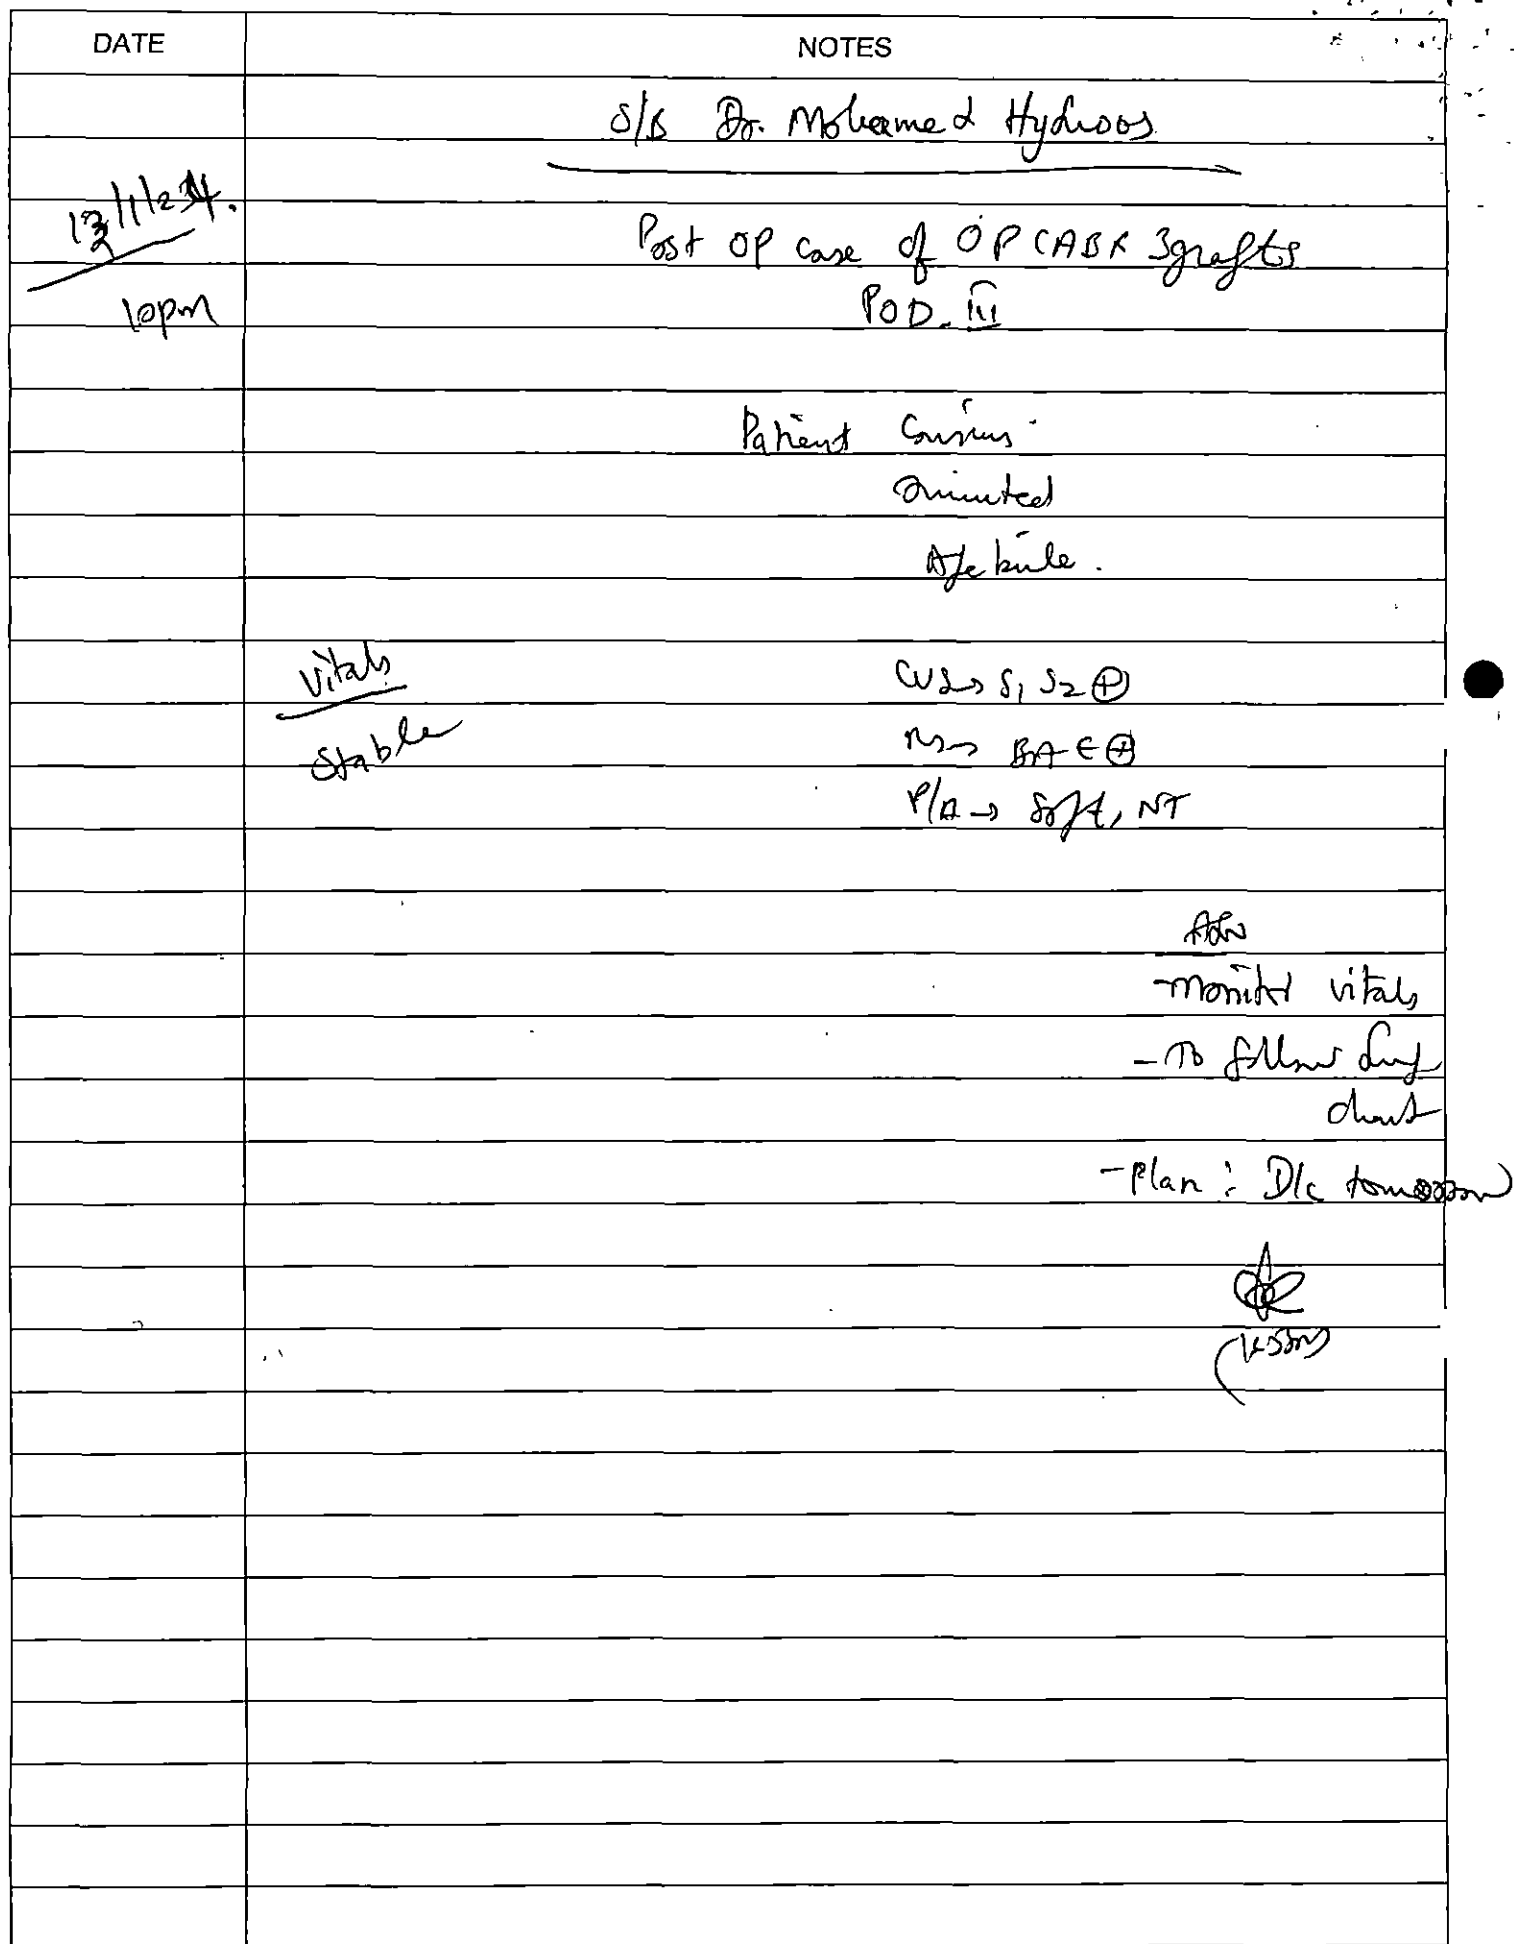 DATE NOTES
S/B Dr. Mohamed Hydroos
13/1/24.
Post OP case of OPCABG 3grafts
10pm
POD-III
Patient Conscious
oriented
Afebrile.
Vitals
CVS→ S1 S2 ⊕
Stable
RS→ BAE⊕
P/A→ Soft, NT
Adv
-Monitor vitals
-To follow drug
chart
-Plan: D/c tomorrow